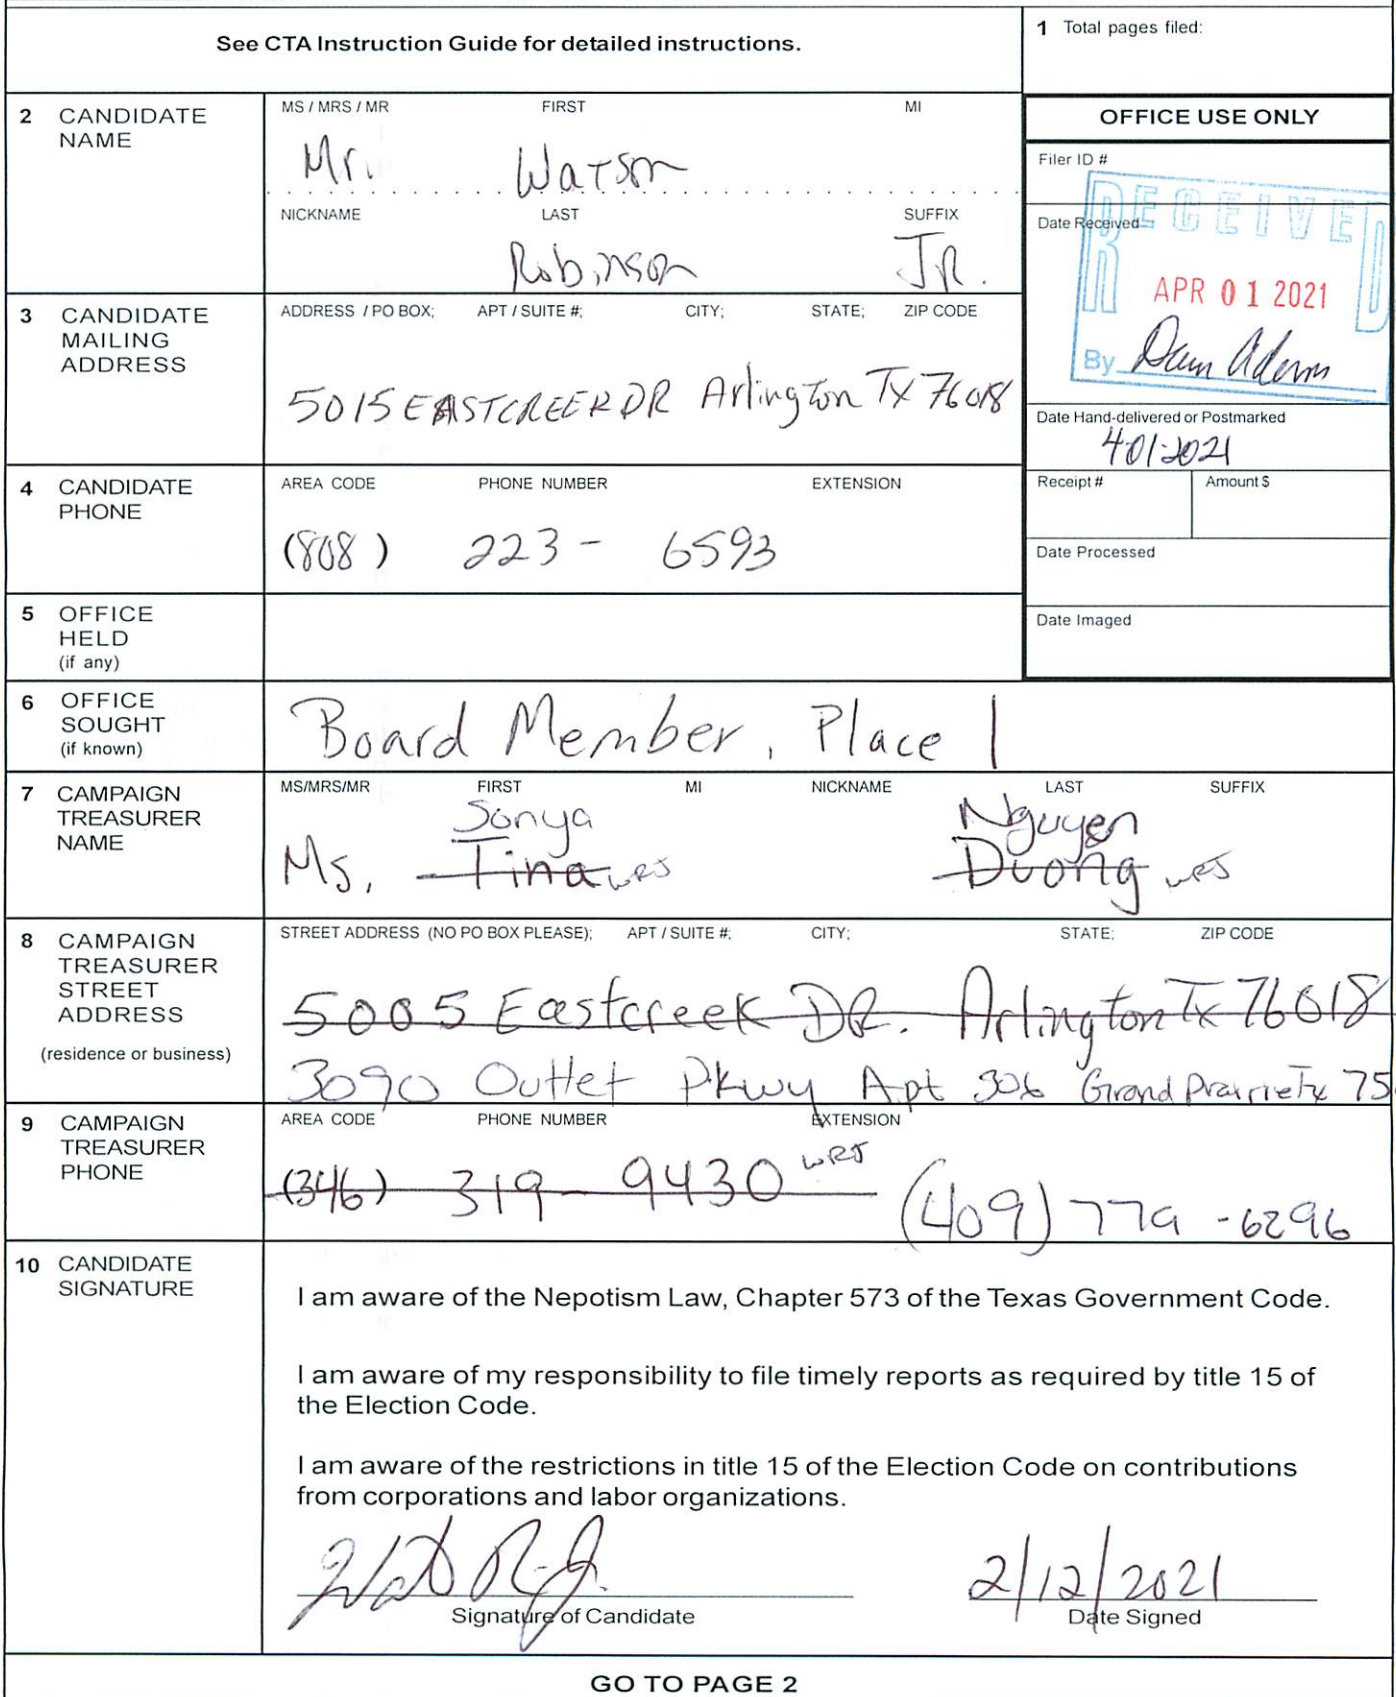 See CTA Instruction Guide for detailed instructions.
1 Total pages filed:
2 CANDIDATE NAME
MS / MRS / MR FIRST MI
Mr. Watson
NICKNAME LAST SUFFIX
Robinson JR.
OFFICE USE ONLY
Filer ID #
Date Received
RECEIVED
APR 01 2021
By
Date Hand-delivered or Postmarked
4-01-2021
Receipt # Amount $
Date Processed
Date Imaged
3 CANDIDATE MAILING ADDRESS
ADDRESS / PO BOX; APT / SUITE #; CITY; STATE; ZIP CODE
5015 EASTCREEK DR Arlington TX 76018
4 CANDIDATE PHONE
AREA CODE PHONE NUMBER EXTENSION
(808) 223 - 6593
5 OFFICE HELD (if any)
6 OFFICE SOUGHT (if known)
Board Member, Place 1
7 CAMPAIGN TREASURER NAME
MS/MRS/MR FIRST MI NICKNAME LAST SUFFIX
Sonya Nguyen
Ms. Tina WRJ Duong WRJ
8 CAMPAIGN TREASURER STREET ADDRESS
(residence or business)
STREET ADDRESS (NO PO BOX PLEASE); APT / SUITE #; CITY; STATE; ZIP CODE
5005 Eastcreek DR. Arlington Tx 76018
3090 Outlet Pkwy Apt 306 Grand Prairie Tx 75
9 CAMPAIGN TREASURER PHONE
AREA CODE PHONE NUMBER EXTENSION
(346) 319 - 9430 WRJ
(409) 779 - 6296
10 CANDIDATE SIGNATURE
I am aware of the Nepotism Law, Chapter 573 of the Texas Government Code.
I am aware of my responsibility to file timely reports as required by title 15 of
the Election Code.
I am aware of the restrictions in title 15 of the Election Code on contributions
from corporations and labor organizations.
2/12/2021
Signature of Candidate Date Signed
GO TO PAGE 2